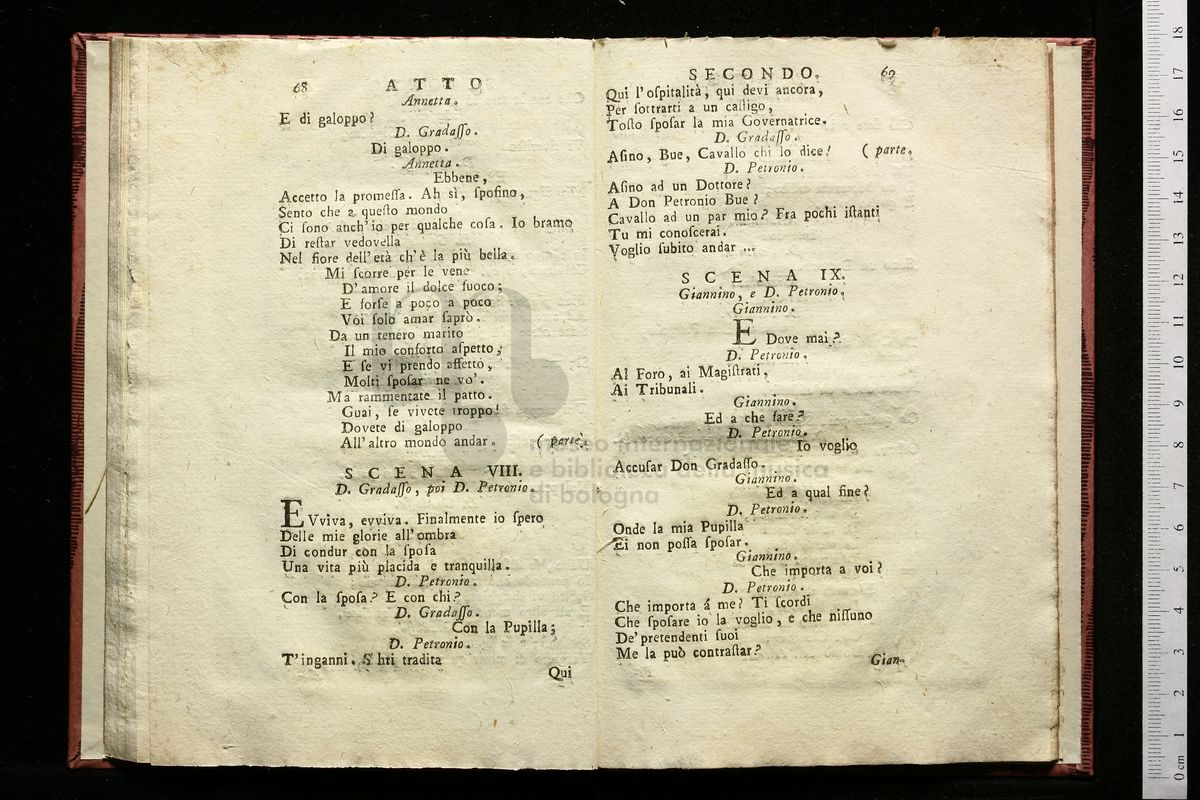 68 ATTO
Annetta.
E di galoppo?
D. Gradaſſo.
Di galoppo.
Annetta.
Ebbene,
Accetto la promeſſa. Ah sì, ſpoſino,
Sento che a queſto mondo
Ci ſono anch'io per qualche coſa. Io bramo
Di reſtar vedovella
Nel fiore dell'età ch'è la più bella.
Mi ſcorre per le vene
D'amore il dolce fuoco;
E forſe a poco a poco
Voi ſolo amar ſaprò.
Da un tenero marito
Il mio conforto aſpetto,
E ſe vi prendo affetto,
Molti ſpoſar ne vo'.
Ma rammentate il patto.
Guai, ſe vivete troppo!
Dovete di galoppo
All'altro mondo andar. (parte.
SCENA VIII.
D. Gradaſſo, poi D. Petronio.
EVviva, evviva. Finalmente io ſpero
Delle mie glorie all'ombra
Di condur con la ſpoſa
Una vita più placida e tranquilla.
D. Petronio.
Con la ſpoſa? E con chi?
D. Gradaſſo.
Con la Pupilla;
D. Petronio.
T'inganni. S'hti tradita
Qui
SECONDO. 69
Qui l'oſpitalità, qui devi ancora,
Per ſottrarti a un caſtigo,
Toſto ſpoſar la mia Governatrice.
D. Gradaſſo.
Aſino, Bue, Cavallo chi lo dice! (parte.
D. Petronio.
Aſino ad un Dottore?
A Don Petronio Bue?
Cavallo ad un par mio? Fra pochi iſtanti
Tu mi conoſcerai.
Voglio ſubito andar ...
SCENA IX.
Giannino, e D. Petronio.
Giannino.
E Dove mai?
D. Petronio.
Al Foro, ai Magiſtrati,
Ai Tribunali.
Giannino.
Ed a che fare?
D. Petronio.
Io voglio
Accuſar Don Gradaſſo.
Giannino.
Ed a qual fine?
D. Petronio.
Onde la mia Pupilla
Ei non poſſa ſpoſar.
Giannino.
Che importa a voi?
D. Petronio.
Che importa á me? Ti ſcordi
Che ſpoſare io la voglio, e che niſſuno
De' pretendenti ſuoi
Me la può contraſtar?
Gian-
museo internazionale
e biblioteca della musica
di bologna
0 cm 1 2 3 4 5 6 7 8 9 10 11 12 13 14 15 16 17 18